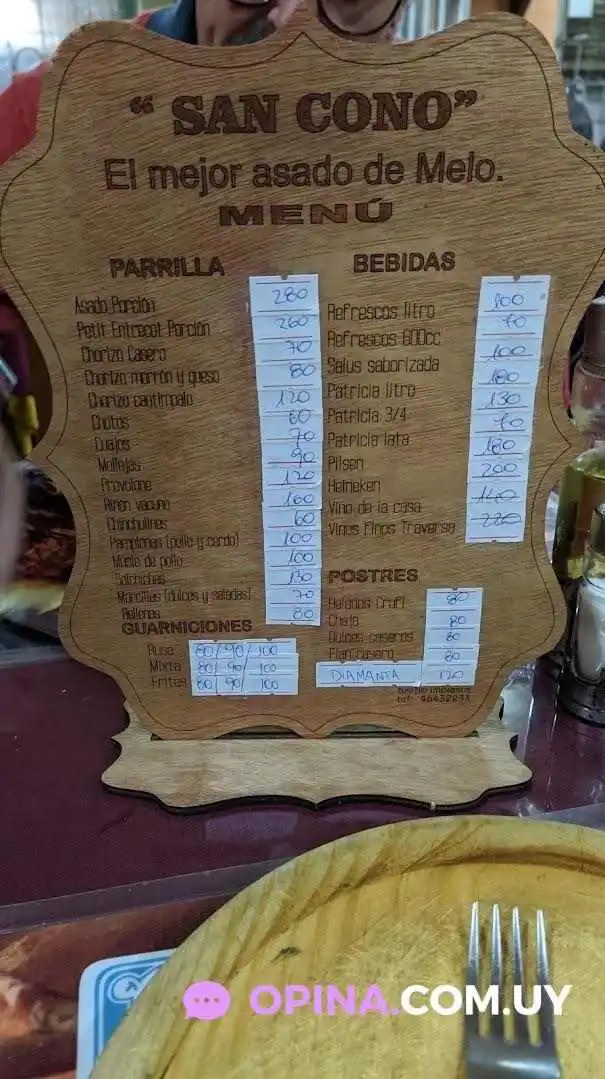 “ SAN CONO”
El mejor asado de Melo.
MENÚ
PARRILLA
Asado Porción 280
Petit Entrecot Porción 260
Chorizo Casero 70
Chorizo morrón y queso 80
Chorizo cantimpalo 120
Chotos 60
Cuajos 70
Mollejas 90
Provolone 120
Riñón vacuno 160
Chinchulines 60
Pamplonas (pollo y cerdo) 100
Muslo de pollo 100
Salchichas 130
Morcillas (dulces y saladas) 70
Rellenas 80
GUARNICIONES
Rusa 80/90/100
Mixta 80/90/100
Fritas 80/90/100
BEBIDAS
Refrescos litro 100
Refrescos 600cc 70
Salus saborizada 100
Patricia litro 180
Patricia 3/4 130
Patricia lata 70
Pilsen 180
Heineken 200
Vino de la casa 160
Vinos Finos Traversa 220
POSTRES
Helados Crufi 80
Chaja 80
Dulces caseros 80
Flan casero 80
DIAMANTA 120
OPINA.COM.UY